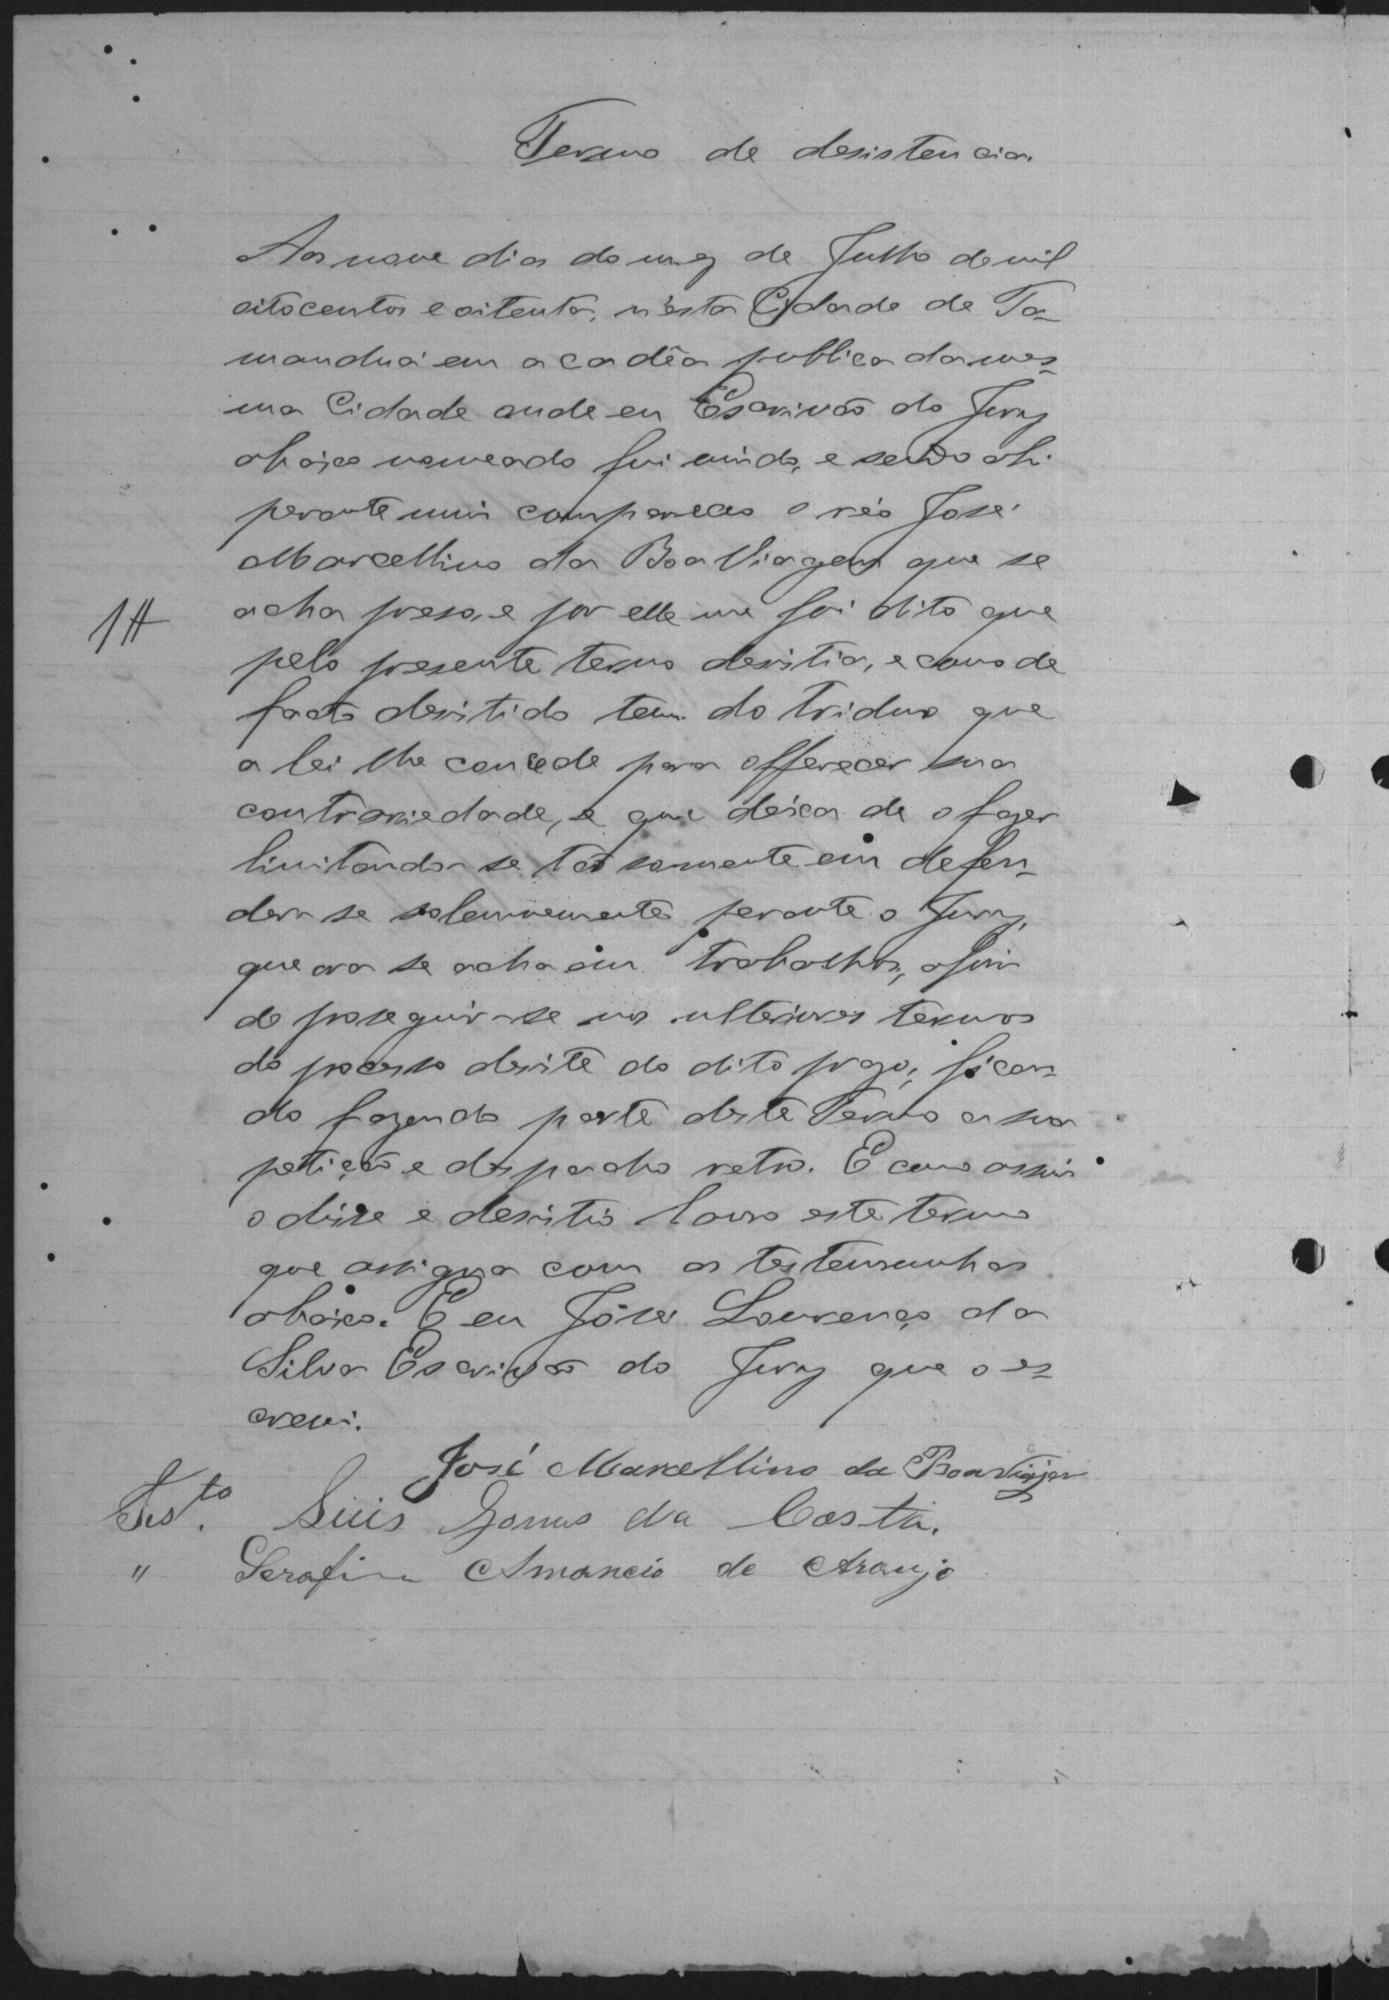 Termo de desistencia.
Aos nove dias do mez de Julho de mil
oitocentos e oitenta, n'esta Cidade de Ta-
manduá em a cadêa publica da mes-
ma Cidade onde eu Escrivão do Jury
abaixo nomeado fui vindo, e sendo ahi
perante mim compareceo o réo José
Marcellino da Boa Viagem que se
acha preso, e por elle me foi dito que
pelo presente termo desistia, e como de
facto desistido tem do triduo que
a lei lhe concede para offerecer sua
contrariedade, e que deixa de o fazer
limitando-se tão somente em defen-
der-se solemnemente perante o Jury,
que ora se acha em trabalhos, afim
de proseguir-se nos ulteriores termos
do processo desiste do dito prazo; fican-
do fazendo parte deste Termo a sua
petição e despacho retro. E como assim
o disse e desistio lavro este termo
que assigna com as testemunhas
abaixo. E eu José Lourenço da
Silva Escrivão do Jury que o es-
crevi.
José Marcellino da Boa Viagem
Test.ª Luis Gomes da Costa.
" Serafim Amancio de Araujo